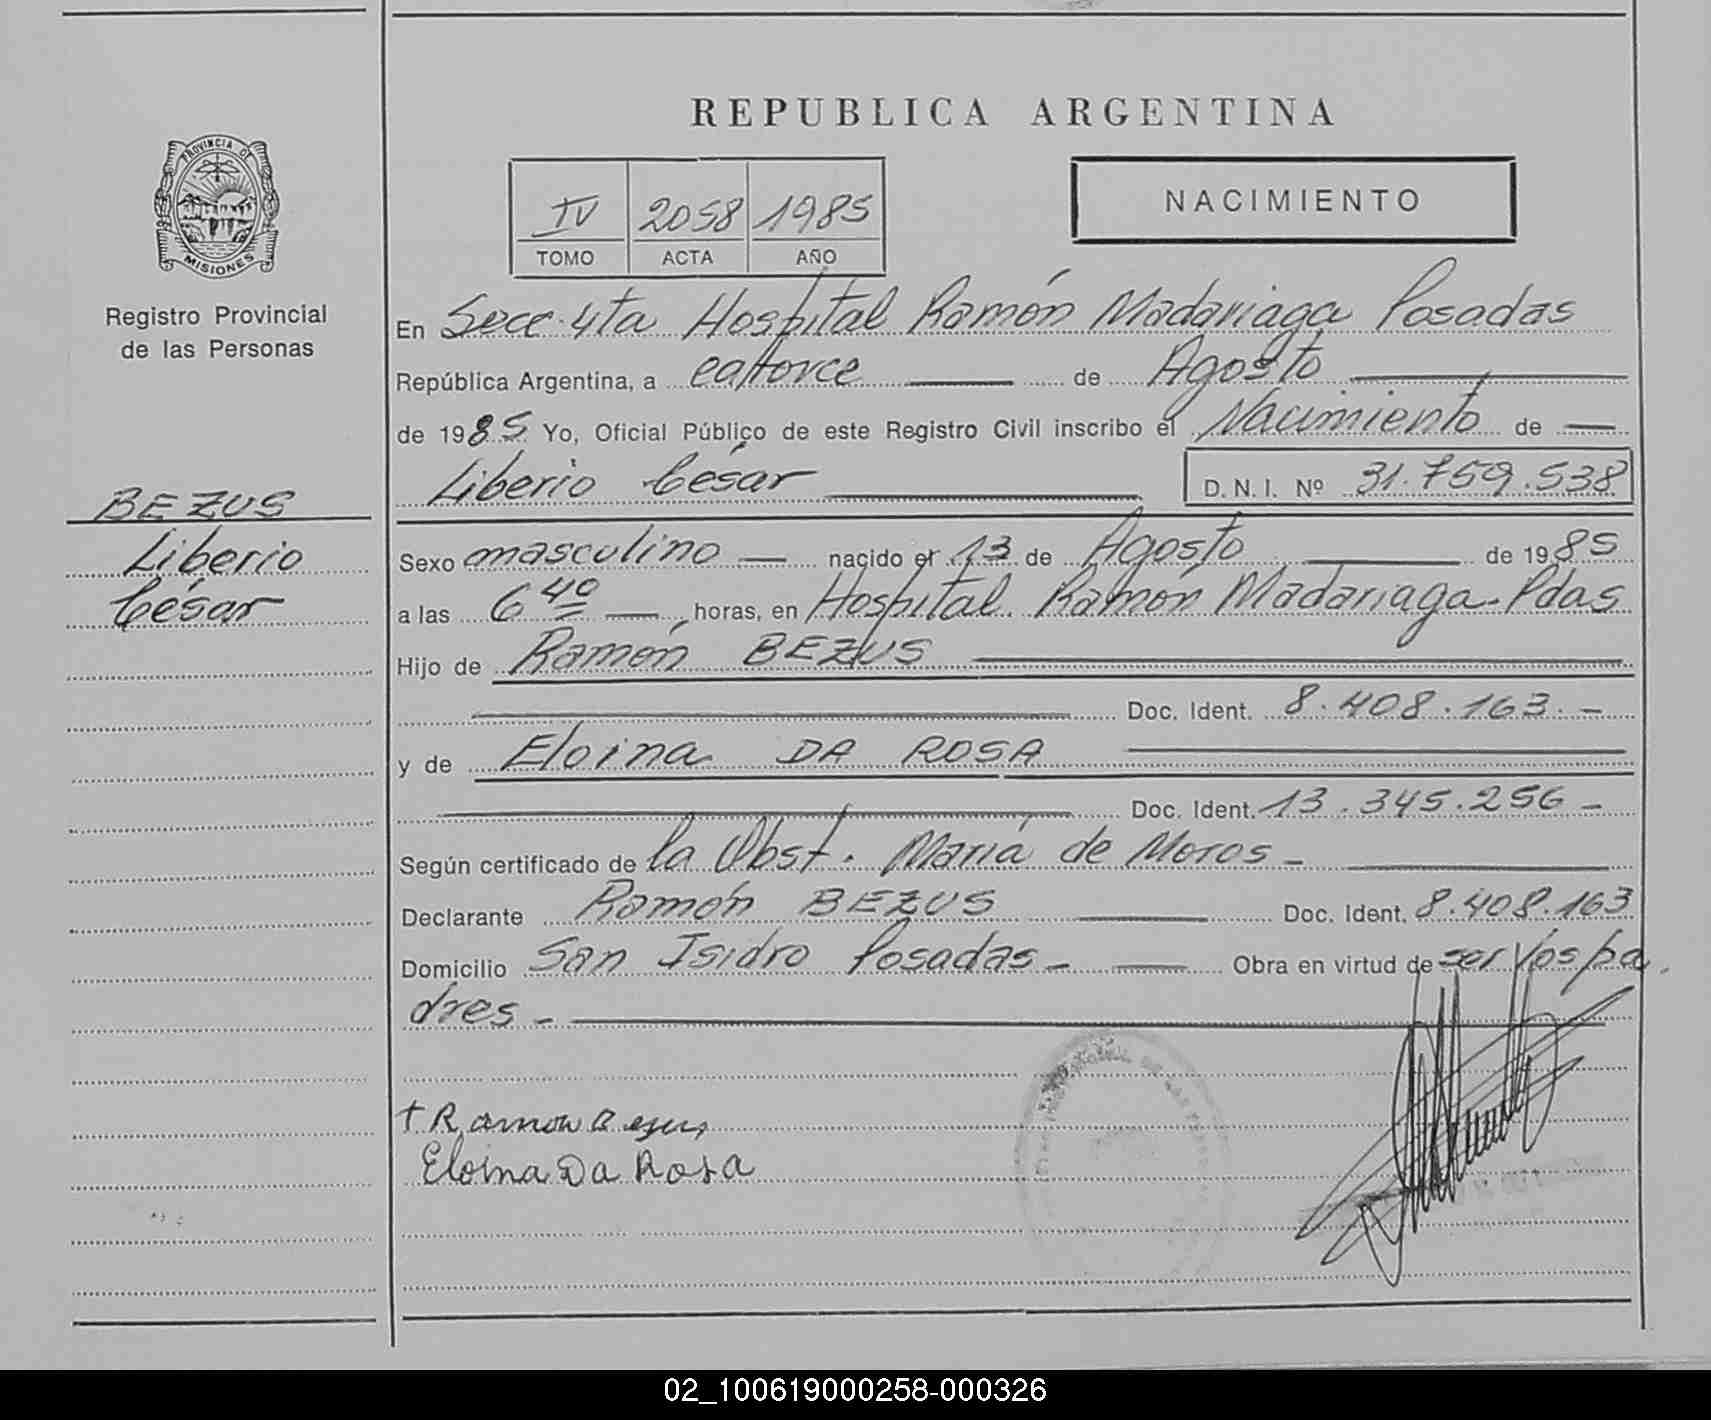 REPUBLICA ARGENTINA
PROVINCIA DE
MISIONES
Registro Provincial
de las Personas
IV 2058 1985
TOMO ACTA AÑO
NACIMIENTO
En Secc. 4ta Hospital Ramón Madariaga Posadas
República Argentina, a catorce de Agosto
de 1985 Yo, Oficial Público de este Registro Civil inscribo el Nacimiento de
Liberio César D. N. I. Nº 31.759.538
BEZUS
Liberio
César
Sexo masculino nacido el 13 de Agosto de 1985
a las 6 40 horas, en Hospital Ramón Madariaga - Pdas
Hijo de Ramón BEZUS
Doc. Ident. 8.408.163.-
y de Eloina DA ROSA
Doc. Ident. 13.345.256-
Según certificado de la Obst. María de Moros -
Declarante Ramón BEZUS Doc. Ident. 8.408.163
Domicilio San Isidro Posadas - Obra en virtud de ser los pa
dres -
+ Ramon Bezus
Eloina Da Rosa
02_100619000258-000326